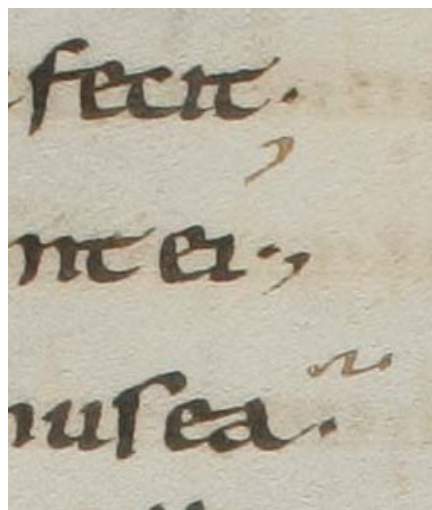 fecit.
nt ei.,
nusea.